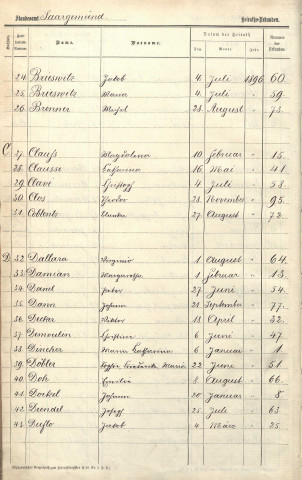 Standesamt Saargemünd Heirats-Urkunden.
Name. Vorname. Datum der Heirath Nummer der Urkunden.
Tag. Monat Jahr
24 Brieswitz Jakob 4 Juli 1896 60
25 Brieswitz Maria 4 Juli " 59
26 Brenner 28 August " 73
C 27 Clauss Magdalena 10 Februar " 15
28 Clausse Catharina 16 Mai " 41
29 Clavé Gustav 4 Juli " 58
30 Clos 28 November " 95
31 Coblentz 27 August " 72
D 32 Dallara 1 August " 64
33 Damian Margaretha 1 Februar " 13
34 Daul Peter 27 Juni " 54
35 Dann Johann 28 September " 77
36 Viktor 18 April " 32
37 Demoulin Christina 6 Juni " 47
38 Dincher Maria Catharina 6 Januar " 1
39 Maria 22 Juni " 51
40 Doh Emilie 8 August " 66
41 Dorkel Johann 20 Januar " 8
42 Dreudel Josef 25 Juli " 63
43 Duflo Jakob 4 März " 25